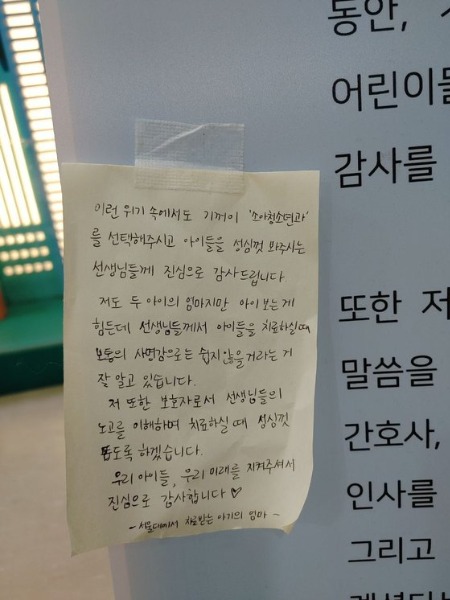 이런 위기 속에서도 기꺼이 '소아청소년과'
를 선택해주시고 아이들을 성심껏 봐주시는
선생님들께 진심으로 감사드립니다
저도 두 아이의 엄마지만 아이 보는 게
힘든데 선생님들께서 아이들을 치료하실 때
보통의 사명감으로는 쉽지 않을 거라는 거
잘 알고 있습니다.
저 또한 보호자로서 선생님들의
노고를 이해하며 치료하실 때 성심껏
돕도록 하겠습니다.
우리 아이들, 우리 미래를 지켜주셔서
진심으로 감사합니다♡
- 서울대에서 치료받는 아기의 엄마 -
동안,
어린이들
감사를
또한 저
말씀을
간호사,
인사를
그리고